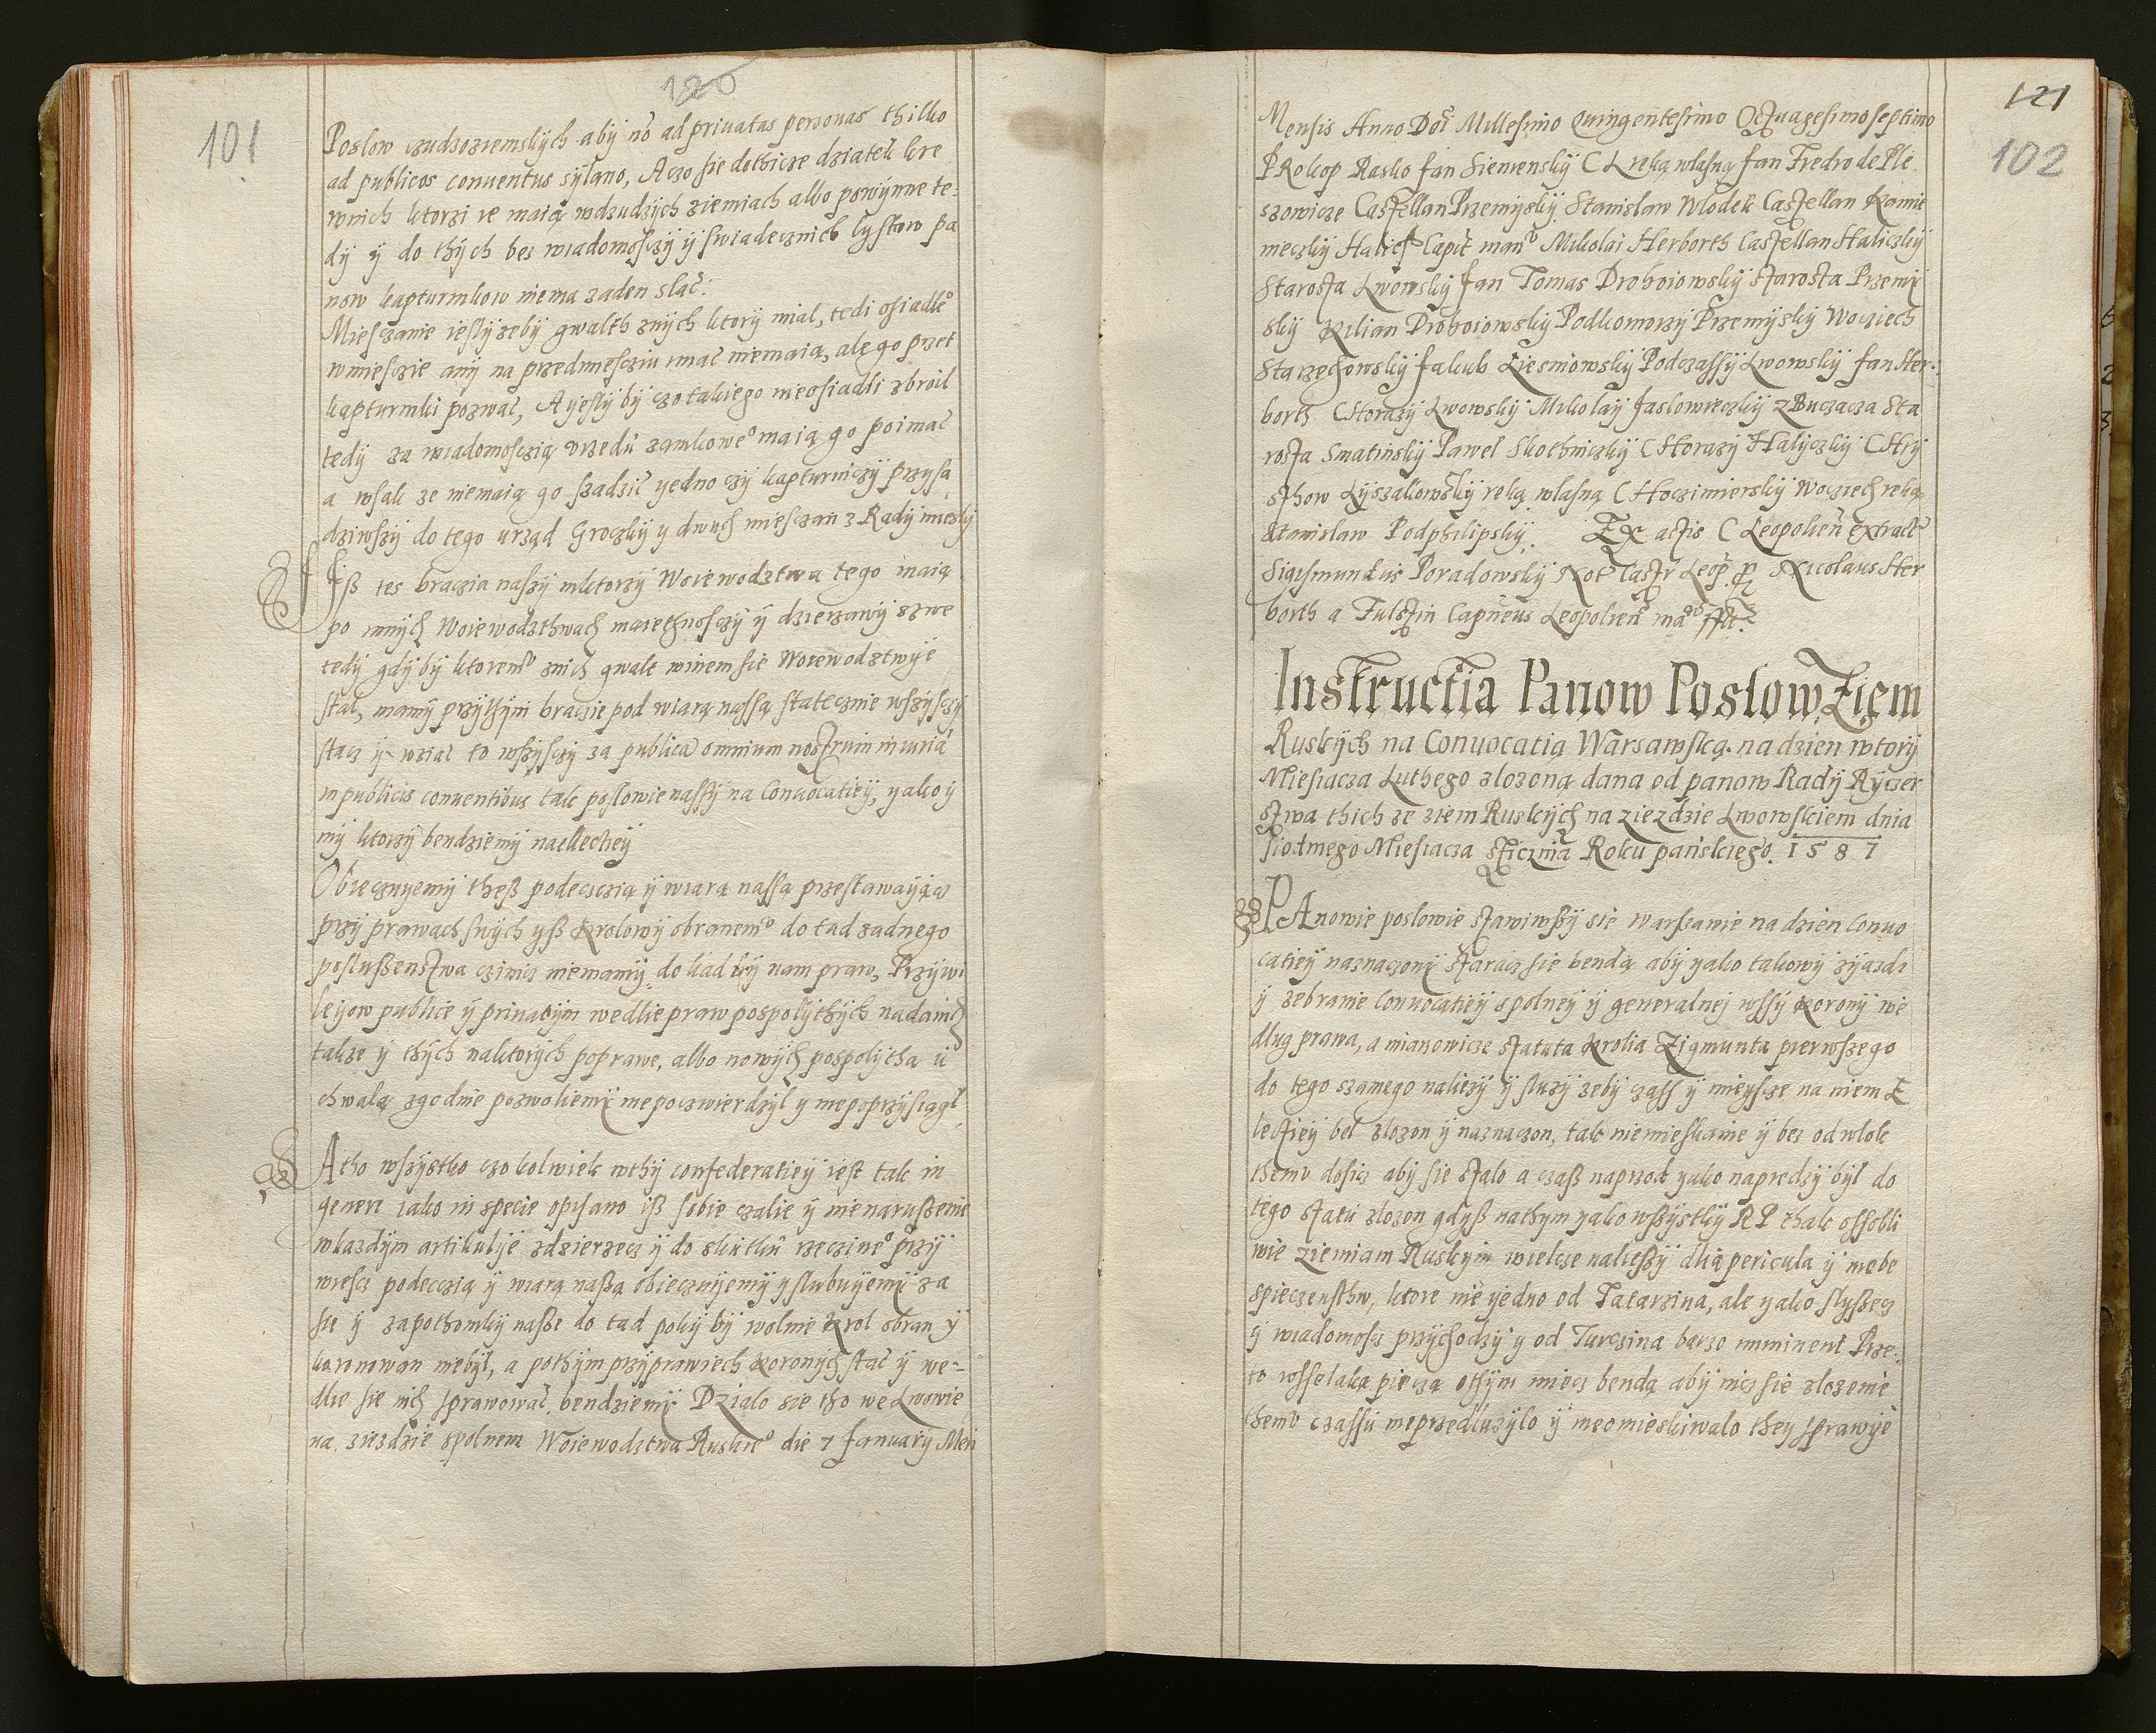 120
101
Poslow czudzoziemskych aby no ad priuatas personas thilko
ad publicos conuentus sylano, A czo sie dothicze dziatek kre
wnich ktorzi ie maią wdzudzych ziemiach albo powynne te:
dy y do thych bes wiadomosczy y swiadecznich lystow pa
now kapturnikow niema zaden slac:
Miesczanie iesly zeby gwalth znych ktory mial, tedi osiadle°
wmiesczie any na przedmiesciu imac niemaią, ale go przet
kapturniki pozwac, A yesly by czo takiego nieosiadli zbroil
tedy za wiadomosczią vrzedu zamkowe° maią go poimac
a wsak ze niemaią go szadzic yedno czy kapturniczy przysa
dziwszy do tego urząd Groczky y dwuch miesczan z Rady miesky
Iß tes braczia naszy niktorzy Woiewodztwa tego maią
po innych Woiewodzthwach maiethnosczy y dzierzawy szwe
tedy gdy by ktoremv znich gwalt winem sie Woiewodztwye
stal, mamy przythym braczie pod wiarą nassą statecznie wszysczy
stacz y wziac to wszysczy za publica omnium nostrum iniuria
in publicis conuentibus tak poslowie nassy na Conuocatiey, yako y
my ktorzy bendziemy na ellectiey
Obiecznyemy theß podecsczią y wiarą nassą przestawayącz
przy prawach swych yß Krolowy obranemv do tad zadnego
poslußenstwa czinicz niemamy, do kad by nam praw, Przywi
leyow publice y priuatym wedlie praw pospolythych nadanich
takze y thych naktorych poprawe, albo nowych pospolytha u
chwalą zgodnie pozwoliemy niepoczwierdzyl y niepoprzysiągl
A tho wszystko czokolwiek wthy confederatiey iest tak in
genere iako in specie opisano iß sobie czalie y nienarußenie
wkazdym artikulye zdzierzecz y do skutku rzeczine° przy
wiesc podecczią y wiarą naßą obiecznyemy y slubuyemy za
sie y zapothomky naße do tad poky by wolnie Krol obran y
koronowan niebyl, a pothym przyprawiech koronych stac y we-
dlie sie nich sprawowac bendziemy Dzialo sie tho we Lwowie
na ziezdzie spolnem Woiewodztwa Ruskie° die 7 January Men
121
102
Mensis Anno Doi Millesimo Quingentesimo Octuagesimo septimo
PRokop Rasko Jan Sienienskij C L reką wlasną Jan Fredro de Ple
szowicze Castellan Przemyskij Stanislaw Wlodek Castellan Kamie
nieczkij Halicz Capit manv Mikolai Herborth Castellan Haliczkij
Starosta Lwowskij Jan Tomas Drohoiowskij starosta Przemy
skij Kilian Drohoiowskij Podkomorzy Przemyskij Wocziech
Starzechowskij Jakub Liesniowskij Podczassy Lwowskij Jan Her:
borth CHorazy Lwowskij Mikolay Jaslowieczkij z Buczacza Sta
rosta Sniatinskij Pawel Skothniczkij CHorazy Halyczkij CHry
sthow Lyszakowskij reką wlasną CHoczimierskij Wocziech reką
Stanislaw Podphilipskij. Ex actis C Leopolien extract
Sigismundus Poradowskij Not Castr Leop Nicolaus Her
borth a Fulstin Capneus Leopolien
Instructia Panow Poslow Ziem
Ruskych na Conuocatią Warsawską. na dzien wtory
Miesiacza Luthego zlozoną dana od panow Rady Ryczer
stwa thich ze ziem Ruskych na ziezdzie Lwowskiem dnia
siodmego Miesiacza sticznia Roku panskiego. 1587
PAnowie poslowie stawiwszy sie warßawie na dzien Conuo
catiey naznaczony staracz sie bendą aby yako takowy zyazd
y zebranie Conuocatiey spolney y generalnej wssy korony we
dlug prawa, a mianowicze statuta Krolia Zigmunta pierwszego
do tego szamego nalieży y sluzy zeby czass y mieysce na niem E
lectiey bel zlozon y naznaczon, tak niemieskanie y bez odwlok
themv dosicz aby sie stalo a czaß naprzod yako napredzy byl do
tego statu zlozon gdyß nathym yako wßystky RP thak ossobli
wie ziemiam Ruskym wielcze nalieży dlią pericula y niebe
spieczensthw, ktore nie yedno od Tatarzina, ale yako slyßecz
y wiadomosz przychodzy y od Turczina barzo imminent Prze:
to wsselaką pieczą othym miecz bendą aby nicz sie zlozenie
themv czassu nieprzedluzylo y nieomieskiwalo they sprawye